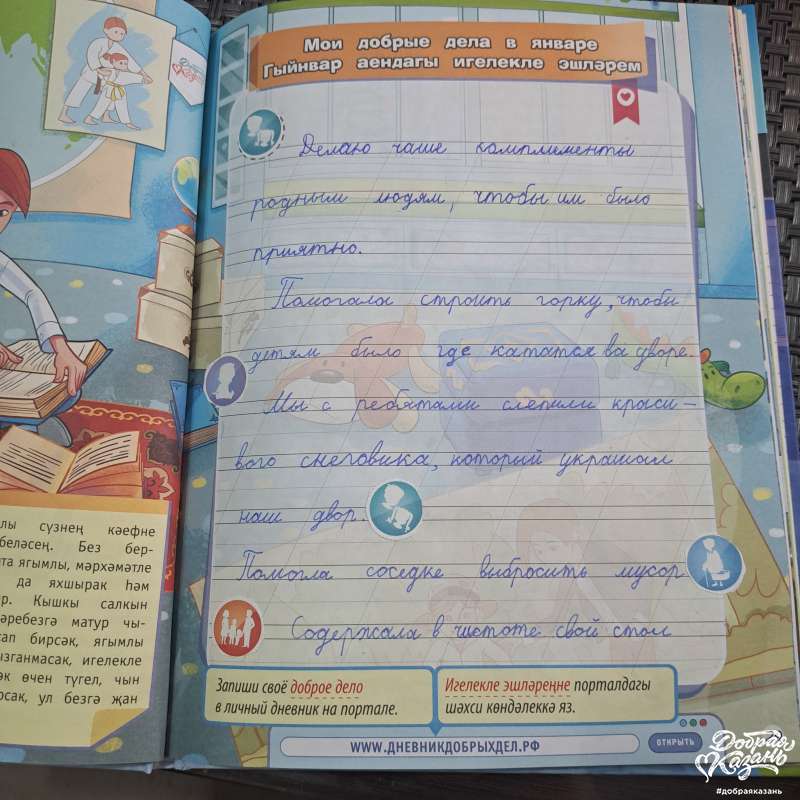 Мои добрые дела в январе
Гыйнвар аендагы игелекле эшләрем
Делаю чаше комплименты
родным людям, чтобы им было
приятно.
Помогала строить горку, чтоби
детям было где кататся ва дворе.
Мы с ребятами слепили краси-
вого снеговика, который украшал
наш двор.
Помогла соседке выбросить мусор
Содержала в чистоте свой стол
лы сүзнең кәефне
беләсең. Без бер-
та ягымлы, мәрхәмәтле
да яхшырак һәм
р. Кышкы салкын
әребезгә матур чы-
сап бирсәк, ягымлы
ызганмасак, игелекле
әк өчен түгел, чын
рсак, ул безгә җан
Запиши своё доброе дело
в личный дневник на портале.
Игелекле эшләреңне порталдагы
шәхси көндәлеккә яз.
WWW.ДНЕВНИКДОБРЫХДЕЛ.РФ
ОТКРЫТЬ
Добрая
Казань
#добраяказань